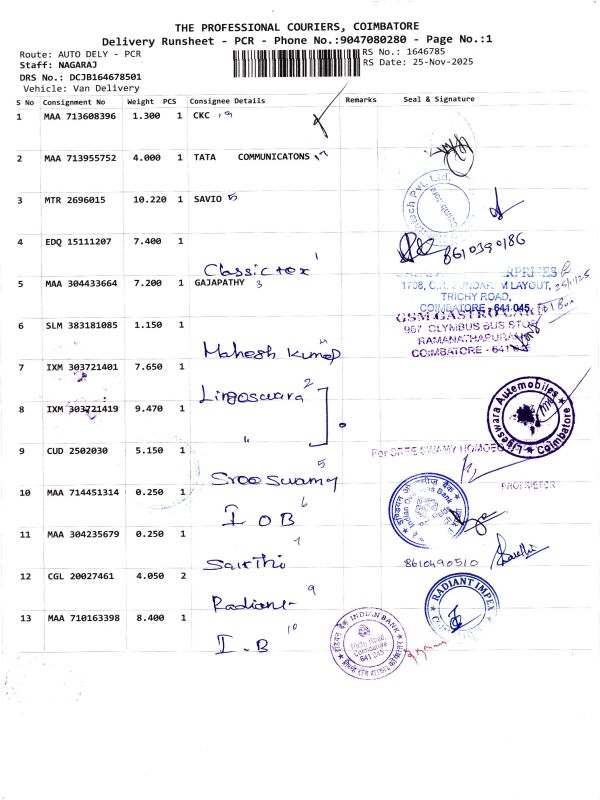 THE PROFESSIONAL COURIERS, COIMBATORE
Delivery Runsheet - PCR - Phone No.:9047080280 - Page No.:1
Route: AUTO DELY - PCR
RS No.: 1646785
Staff: NAGARAJ
RS Date: 25-Nov-2025
DRS No.: DCJB164678501
Vehicle: Van Delivery
S No Consignment No Weight PCS Consignee Details Remarks Seal & Signature
1 MAA 713608396 1.300 1 CKC 19
2 MAA 713955752 4.000 1 TATA COMMUNICATONS 17
3 MTR 2696015 10.220 1 SAVIO 5
4 EDQ 15111207 7.400 1
8610390186
Classic tex 1
5 MAA 304433664 7.200 1 GAJAPATHY 3
1708, LAYOUT,
TRICHY ROAD,
COIMBATORE-641 045.
6 SLM 383181085 1.150 1
GSM GASTRO CARE
967 OLYMBUS BUS STOP
RAMANATHAPURAM
COIMBATORE - 641
Mahesh Kumar
7 IXM 303721401 7.650 1
Lingeswara 2
8 IXM 303721419 9.470 1
"
Lingeswara Automobiles
Coimbatore
9 CUD 2502030 5.150 1
For SREE SWAMY HOMOEO
PROPRIETOR
Sree Swamy 5
10 MAA 714451314 0.250 1
I O B 6
Indian Overseas Bank
11 MAA 304235679 0.250 1
Sarthi 7
8610490510
12 CGL 20027461 4.050 2
Radiant 9
RADIANT IMPEX
13 MAA 710163398 8.400 1
I.B 10
इंडियन बैंक INDIAN BANK
Trichy Road,
Coimbatore
641 045